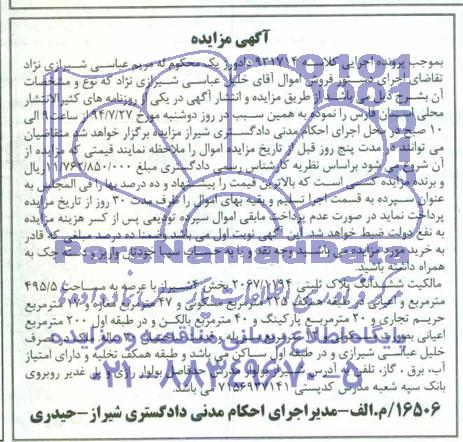 آگهی مزایده
بموجب پرونده اجرایی کلاسه ۹۳۱۷۱۴ دادورز یک محکوم له مریم عباسی شیرازی نژاد
تقاضای اجرای دستور فروش اموال آقای خلیل عباسی شیرازی نژاد که نوع و مشخصات
آن بشرح ذیل می باشد از طریق مزایده و انتشار آگهی در یکی از روزنامه های کثیرالانتشار
محلی استان فارس را نموده به همین سبب در روز دوشنبه مورخ ۹۴/۷/۲۷ از ساعت ۹ الی
۱۰ صبح در محل اجرای احکام مدنی دادگستری شیراز مزایده برگزار خواهد شد متقاضیان
می توانند تا مدت پنج روز قبل از تاریخ مزایده اموال را ملاحظه نمایند قیمتی که مزایده از
آن شروع می شود براساس نظریه کارشناس رسمی دادگستری مبلغ ریال
و برنده مزایده کسی است که بالاترین قیمت را پیشنهاد و ده درصد بها را فی المجلس به
عنوان سپرده به قسمت اجرا تسلیم و بقیه بهای اموال را ظرف مدت ۳۰ روز از تاریخ مزایده
پرداخت نماید در صورت عدم پرداخت مابقی اموال سپرده تودیعی پس از کسر هزینه مزایده
به نفع دولت ضبط خواهد شد. این آگهی نوبت اول می باشد. ضمنا ده درصد مبلغی که قادر
به خرید مورد مزایده می باشید وجه نقد و یا به حساب سیبا خودتان واریز و دسته چک به
همراه داشته باشید.
مالکیت ششدانگ پلاک ثبتی ۲۰۶۷/۱۱۹۴ بخش ۴ شیراز با عرصه به مساحت ۴۹۵/۵
مترمربع و اعیانی در طبقه همکف ۲۲۵ مترمربع مسکونی و ۴۷ مترمربع مغازه و مترمربع
حریم تجاری و ۲۰ مترمربع پارکینگ و ۴۰ مترمربع بالکن و در طبقه اول ۲۰۰ مترمربع
اعیانی بصورت مسکونی
خلیل عباسی شیرازی و در طبقه اول ساکن می باشد و طبقه همکف تخلیه و دارای امتیاز
آب، برق، گاز، تلفن به آدرس شیراز بولوار مدرس حدفاصل بولوار رازی و پل غدیر روبروی
بانک سپه شعبه مدرس کدپستی ۷۱۵۶۹۳۷۱۴۱
۱۶۵۰۶/م.الف-مدیر اجرای احکام مدنی دادگستری شیراز-حیدری
ParsNamadData
پایگاه اطلاع رسانی مناقصه و مزایده
۰۲۱-۸۸۳۴۹۶۷۰-۵